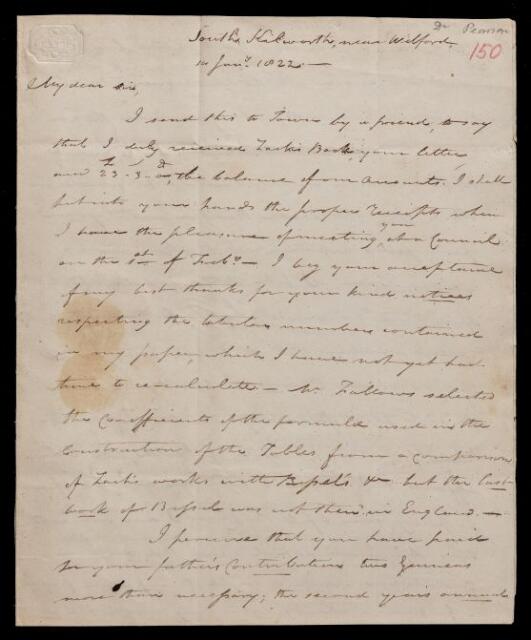 Dr Pearson
150
South Kilworth, near Welford,
14 Jany. 1822. —
My dear Sir,
I send this to Town by a friend, to say
that I duly received Zach's Book, your letter,
and £23 - 3s - 0d, the balance of our accounts. I shall
put into your hands the proper receipts when
I have the pleasure of meeting you at a Council
on the 1st of Feby. — I beg your acceptance
of my best thanks for your kind notices
respecting the tabular numbers contained
in my paper, which I have not yet had
time to re-calculate — Mr. Fallows selected
the coefficients of the formulae used in the
construction of the Tables from a comparison
of Zach's works with Bessel's &c but the last
book of Bessel was not then in England. —
I perceive that you have paid
for your father's contribution two Guineas
more than necessary; the second year's annual